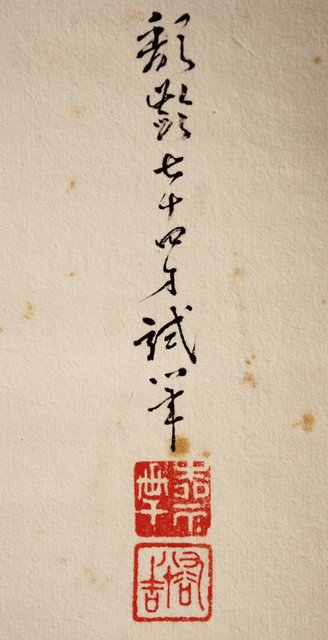 頽齡七十四才試筆